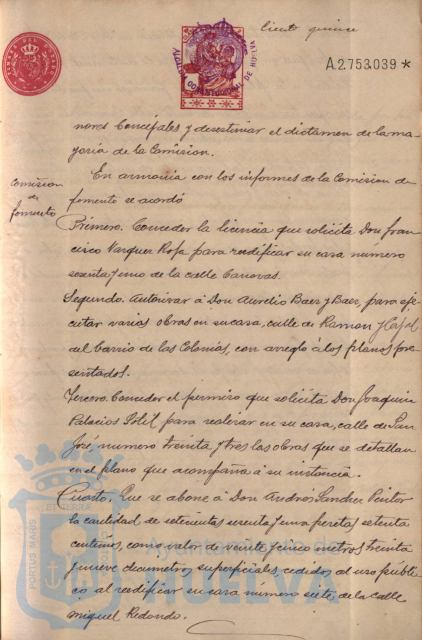 ciento quince
A.2.753.039 *
ALCALDIA CONSTITUCIONAL DE HUELVA
nores Concejales y desestimar el dictamen de la ma-
yoria de la Comision.
Comision
de
fomento
En armonia con los informes de la Comision de
fomento se acordó
Primero. Conceder la licencia que solicita Don Fran-
cisco Vazquez Roja para redificar su casa número
sesenta y uno de la calle Canovas.
Segundo. Autorizar á Don Aurelio Baez y Baez, para eje-
cutar varias obras en su casa, calle de Ramon y Cajal
del barrio de las Colonias, con arreglo á los planos pre-
sentados.
Tercero. Conceder el permiso que solicita Don Joaquin
Palacios para realizar en su casa, calle de San
José, número treinta y tres las obras que se detallan
en el plano que acompaña á su instancia.
Cuarto. Que se abone á Don Andres Sanchez Pintor
la cantidad de setecientas sesenta y una pesetas setenta
centimos, como valor de veinte y cinco metros treinta
y nueve decimetros superficiales cedidos al uso públi-
co al redificar su casa número siete de la calle
Miguel Redondo.
PORTUS MARIS ET TERRAE
Ayuntamiento de
HUELVA